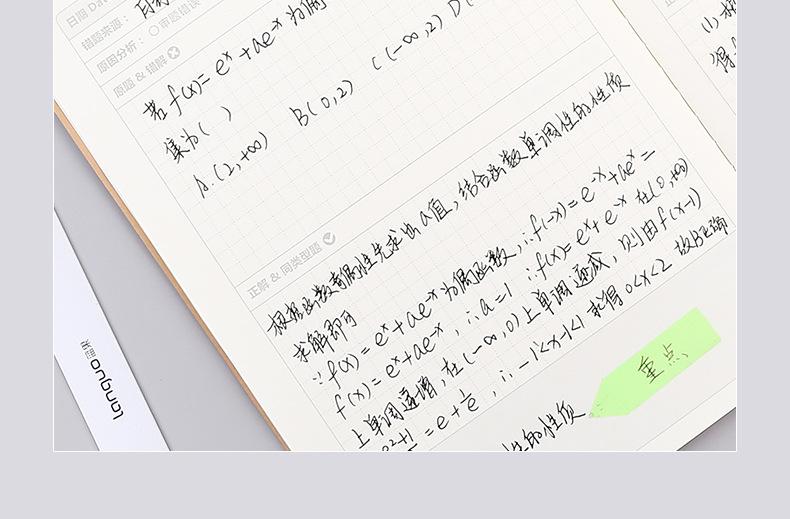 日期 Dat
错题来源：月
原因分析：○ 审题错误
原题 & 错解
若f(x)= eˣ + ae⁻ˣ 为偶
集为( )
A.(2,+∞) B(0,2) C(-∞,2) D(
正解 & 同类型题
根据函数奇偶性先求出a值，结合函数单调性的性质
求解即可
∵f(x)= eˣ + ae⁻ˣ 为偶函数，∴f(-x)= e⁻ˣ + aeˣ =
f(x)= eˣ+ae⁻ˣ，∴a=1 ∴f(x)= eˣ+e⁻ˣ 在(0,+∞)
上单调递增，在(-∞,0)上单调递减，则由f(x-1)
= e + 1/e，∴-1<x-1<1 求得 0<x<2 故B正确
重点
性的性质
(1)
得
Languo